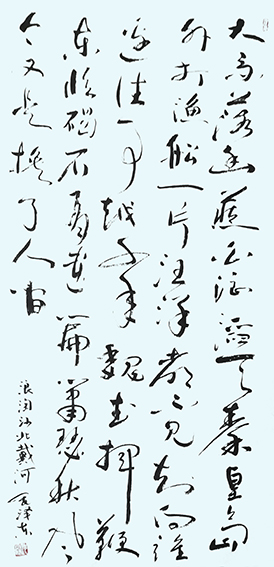 大雨落幽燕白浪滔天秦皇岛
外打渔船一片汪洋都不见知向谁
边往事越千年魏武挥鞭
东临碣石有遗篇萧瑟秋风
今又是换了人间
浪淘沙北戴河 毛泽东